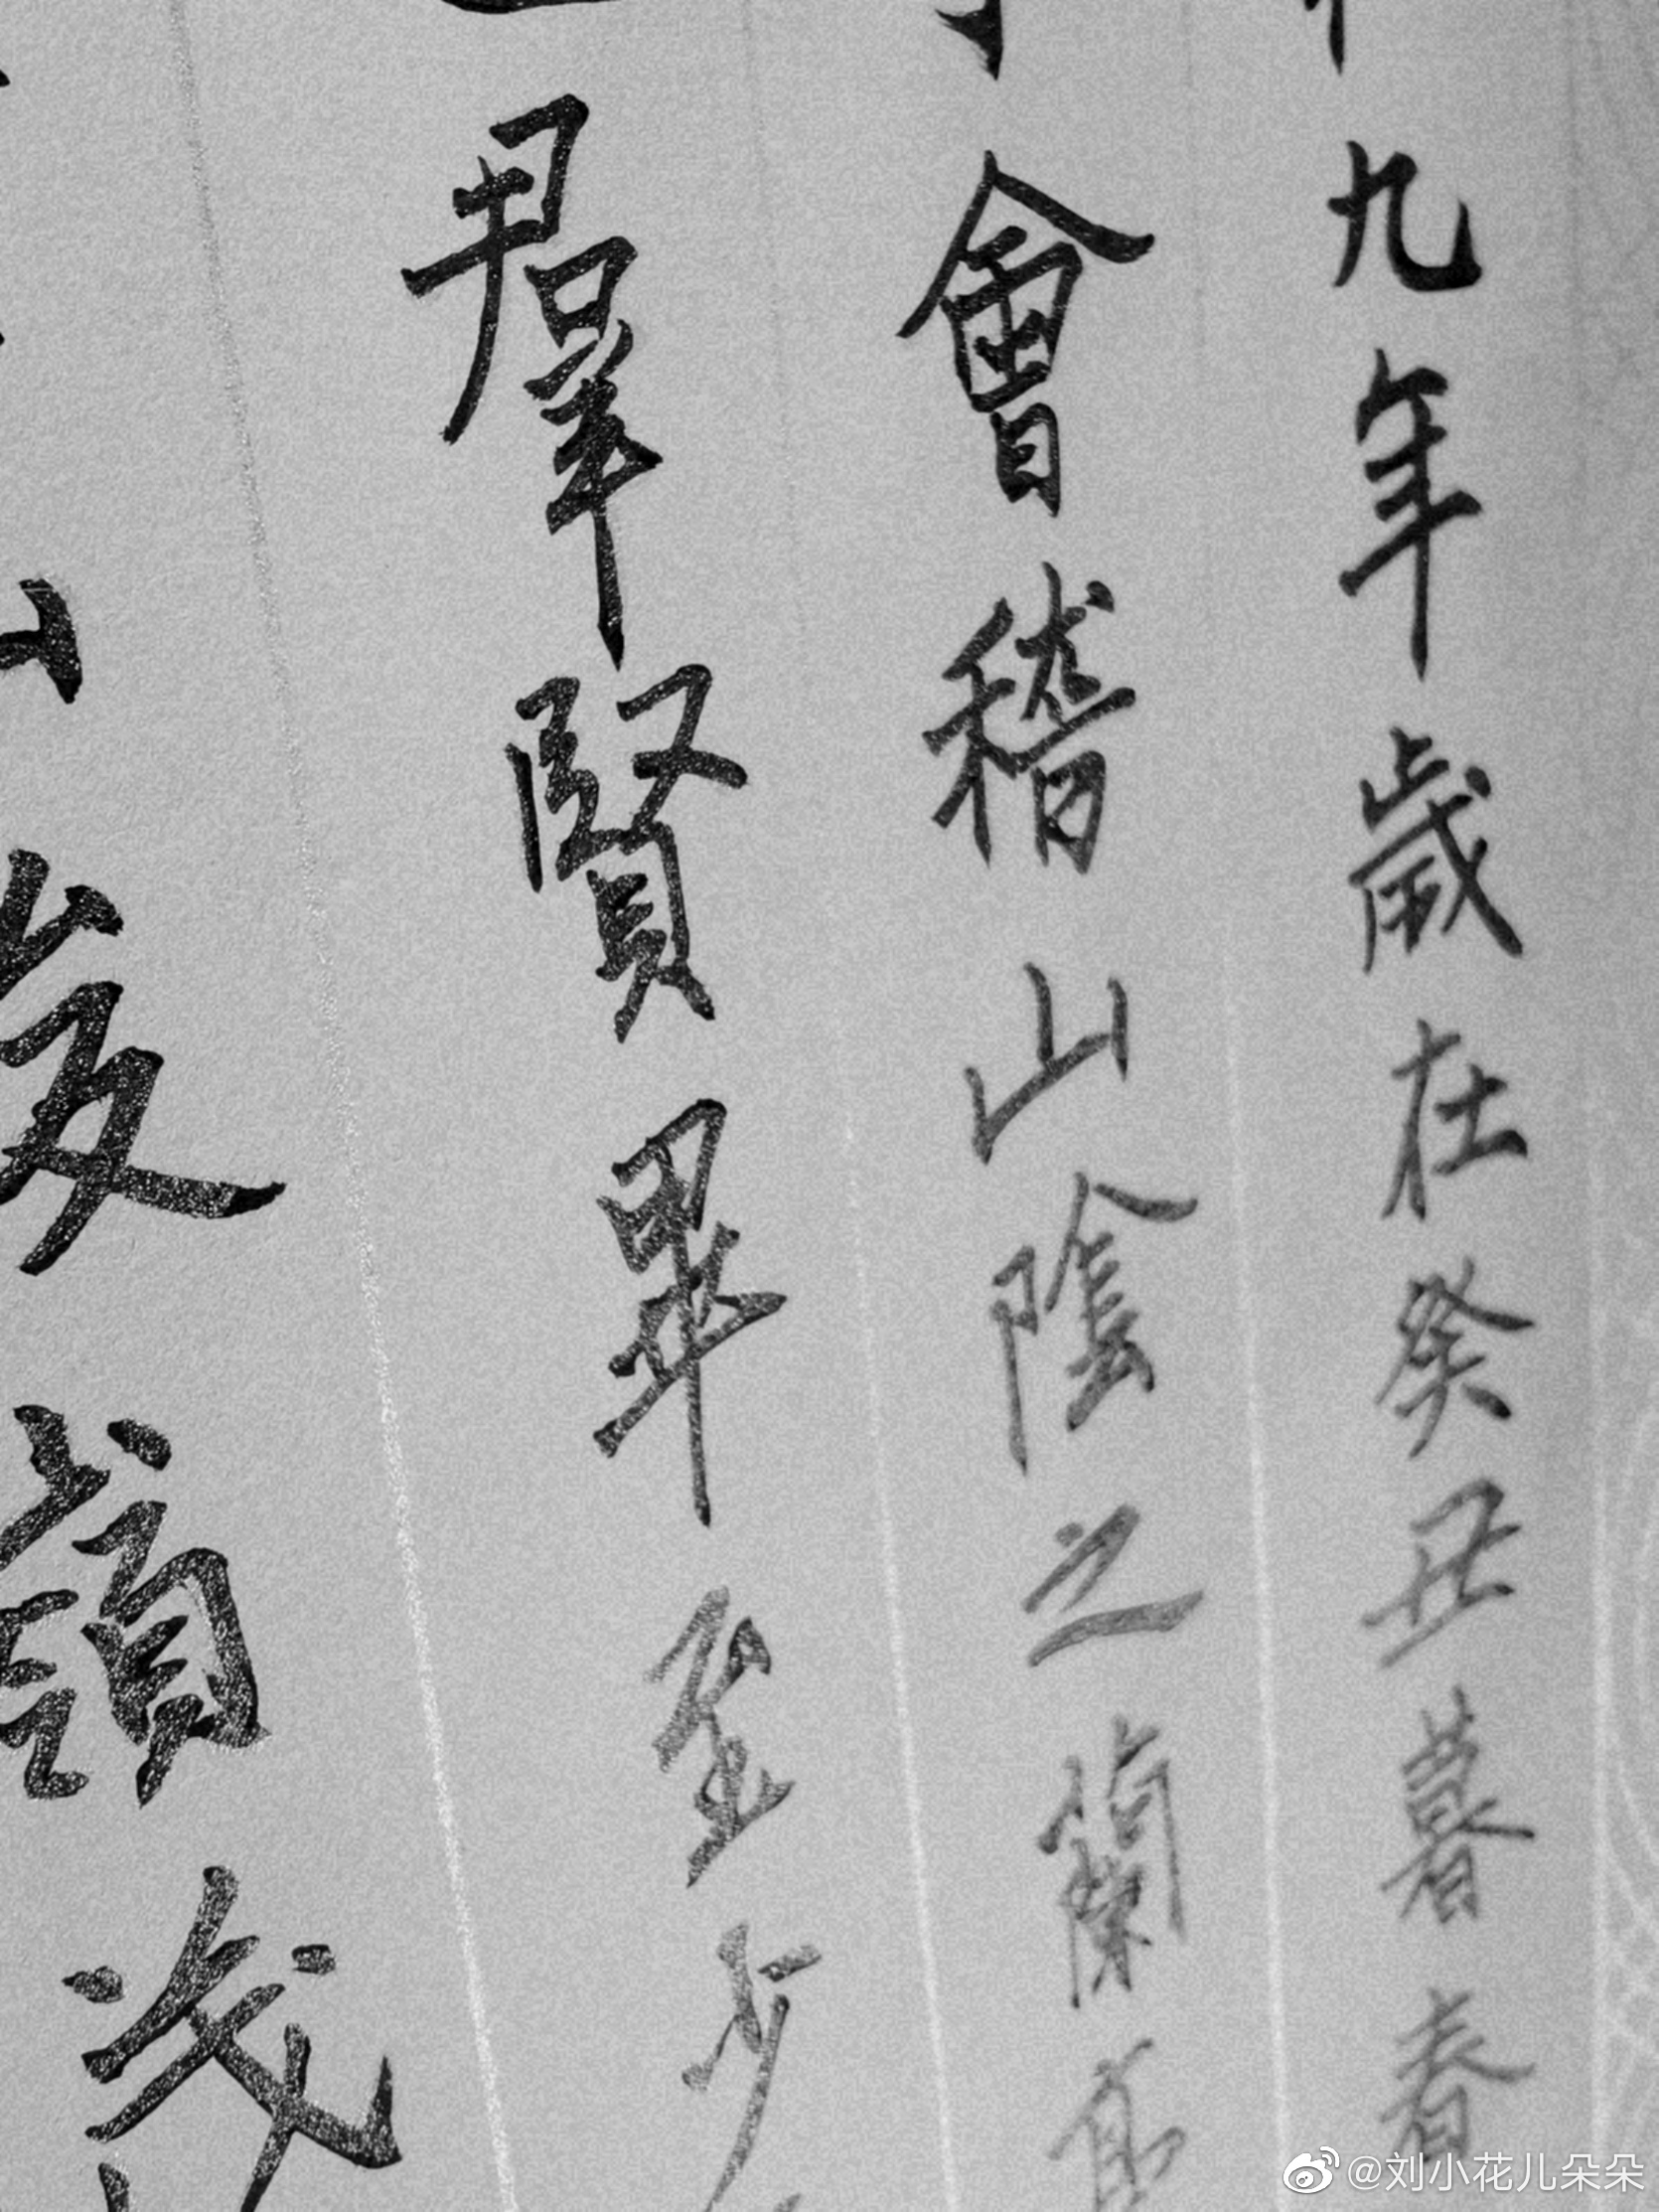 九年歲在癸丑暮春
會稽山陰之蘭亭
羣賢畢至少
山峻領茂
@刘小花儿朵朵